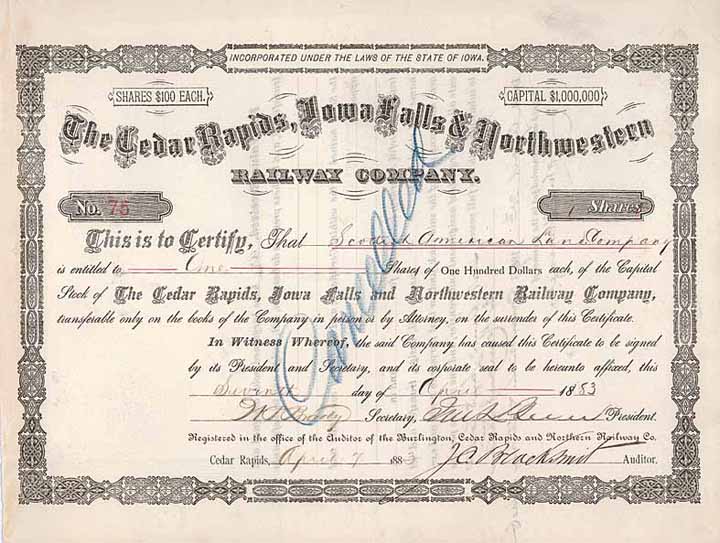 INCORPORATED UNDER THE LAWS OF THE STATE OF IOWA.
SHARES $100 EACH. CAPITAL $1,000,000
The Cedar Rapids, Iowa Falls & Northwestern
RAILWAY COMPANY.
No. 75 1 Shares
This is to Certify, That American Land Company
is entitled to One Shares of One Hundred Dollars each, of the Capital
Stock of The Cedar Rapids, Iowa Falls and Northwestern Railway Company,
transferable only on the books of the Company in person or by Attorney, on the surrender of this Certificate.
In Witness Whereof, the said Company has caused this Certificate to be signed
by its President and Secretary, and its corporate seal to be hereunto affixed, this
Seventh day of April 1883
Secretary, President.
Registered in the office of the Auditor of the Burlington, Cedar Rapids and Northern Railway Co.
Cedar Rapids, April 7 1883 J.C. Brocksmit Auditor.
Cancelled